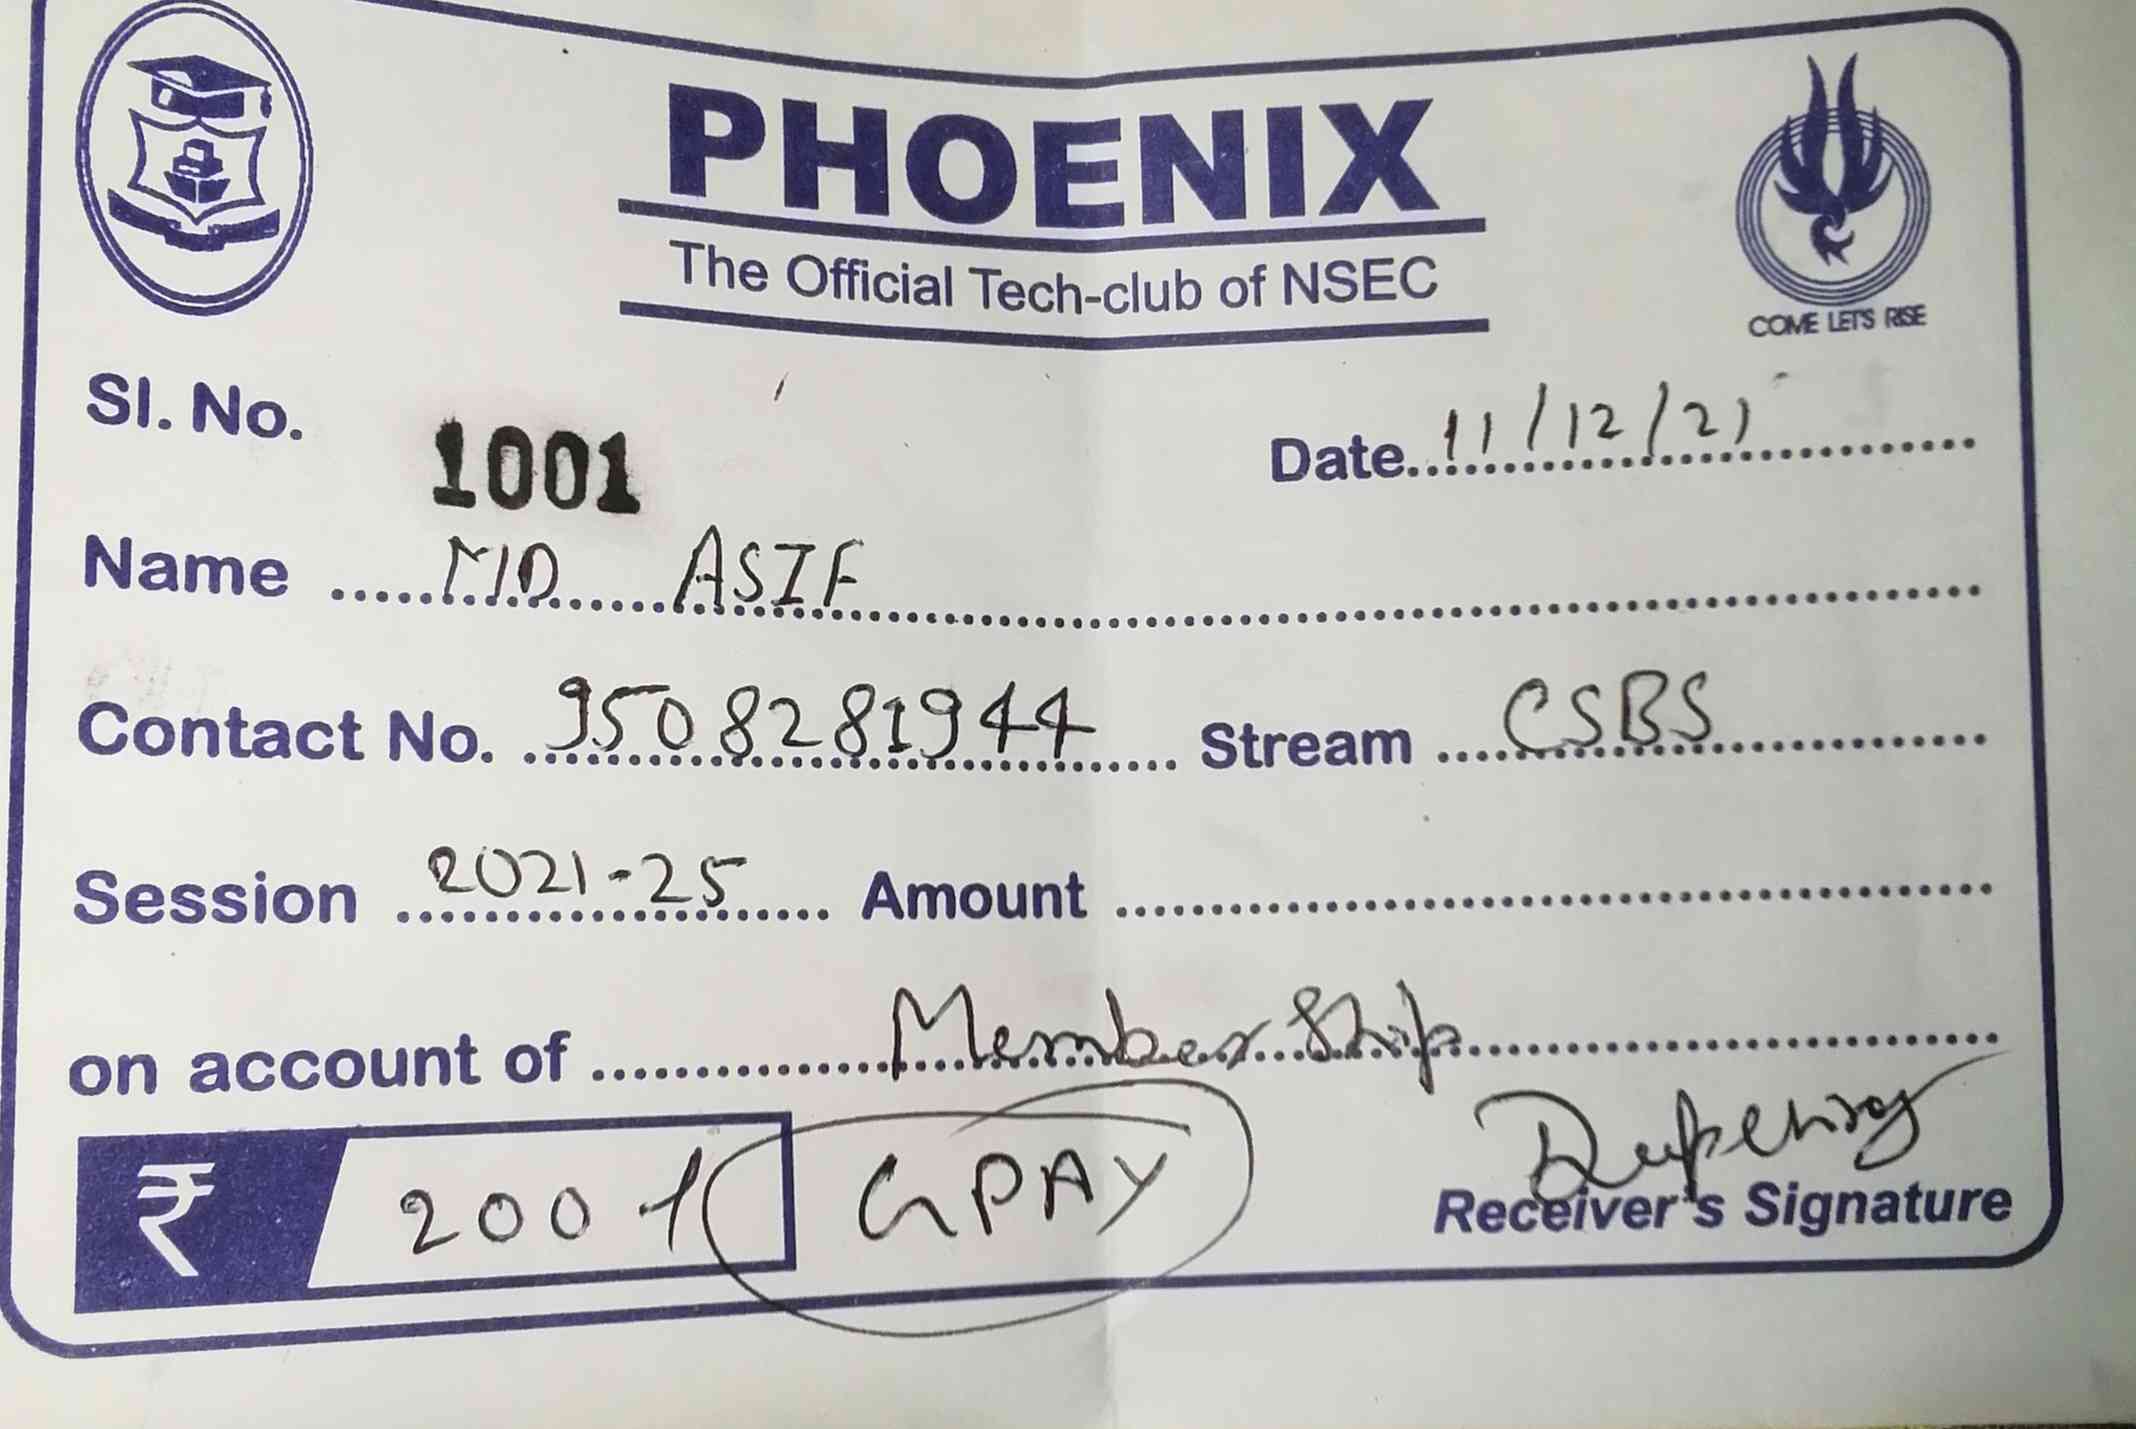 PHOENIX
The Official Tech-club of NSEC
COME LET'S RISE
Sl. No. 1001
Date 11/12/21
Name MD ASIF
Contact No. 9508281944 Stream CSBS
Session 2021-25 Amount
on account of Membership
₹ 200/- GPAY
Receiver's Signature